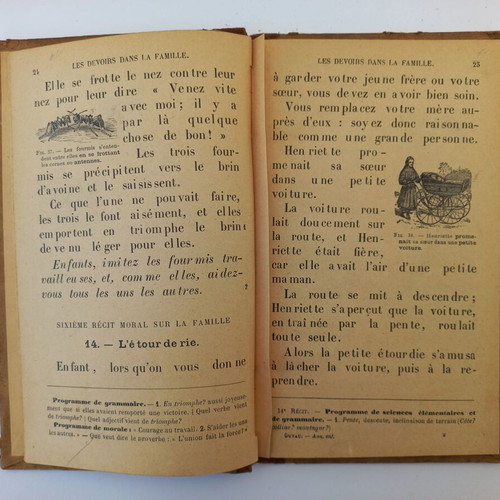 24 LES DEVOIRS DANS LA FAMILLE.
Elle se frotte le nez contre leur
nez pour leur dire « Venez vite
avec moi; il y a
par là quelque
chose de bon! »
FIG. 27. — Les fourmis s'enten-
dent entre elles en se frottant
les antennes.
Les trois four-
mis se précipitent vers le brin
d'avoine et le saisissent.
Ce que l'une ne pouvait faire,
les trois le font aisément, et elles
emportent en triomphe le brin
devenu léger pour elles.
Enfants, imitez les fourmis tra-
vailleuses, et, comme elles, aidez-
vous tous les uns les autres.
SIXIÈME RÉCIT MORAL SUR LA FAMILLE
14. — L'étourderie.
Enfant, lorsqu'on vous donne
Programme de grammaire. — 1. En triomphe? aussi joyeuse-
ment que si elles avaient remporté une victoire. (Quel verbe vient
de triomphe? Quel adjectif vient de triomphe?)
Programme de morale: « Courage au travail. 2. S'aider les uns
les autres. » — Que veut dire le proverbe: « L'union fait la force? »
LES DEVOIRS DANS LA FAMILLE. 25
à garder votre jeune frère ou votre
sœur, vous devez en avoir bien soin.
Vous remplacez votre mère au-
près d'eux: soyez donc raison-
nable comme une grande personne.
Henriette pro-
menait sa sœur
dans une petite
voiture.
La voiture rou-
lait doucement sur
la route, et Hen-
riette était fière,
car elle avait l'air d'une petite
maman.
FIG. 28. — Henriette prome-
nait sa sœur dans une petite
voiture.
La route se mit à descendre;
Henriette s'aperçut que la voiture,
entraînée par la pente, roulait
toute seule.
Alors la petite étourdie s'amusa
à lâcher la voiture, puis à la re-
prendre.
14e RÉCIT. — Programme de sciences élémentaires et
de grammaire. — 1. Pente, descente, inclinaison de terrain (Côte?
colline? montagne?)